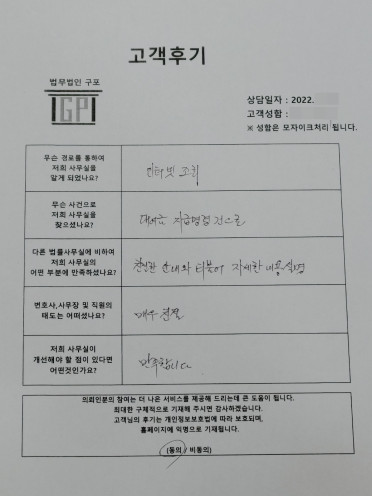 고객후기
법무법인 구포
IGPI
상담일자 : 2022.
고객성함 :
※ 성함은 모자이크처리 됩니다.
무슨 경로를 통하여
저희 사무실을
알게 되었나요?
인터넷 조회
무슨 사건으로
저희 사무실을
찾으셨나요?
대여금 지급명령 건으로
다른 법률사무실에 비하여
저희 사무실의
어떤 부분에 만족하셨나요?
친절한 안내와 더불어 자세한 내용설명
변호사,사무장 및 직원의
태도는 어떠셨나요?
매우 친절
저희 사무실이
개선해야 할 점이 있다면
어떤것인가요?
만족합니다
의뢰인분의 참여는 더 나은 서비스를 제공해 드리는데 큰 도움이 됩니다.
최대한 구체적으로 기재해 주시면 감사하겠습니다.
고객님의 후기는 개인정보보호법에 따라 보호되며,
홈페이지에 익명으로 기재됩니다.
(동의 / 비동의)